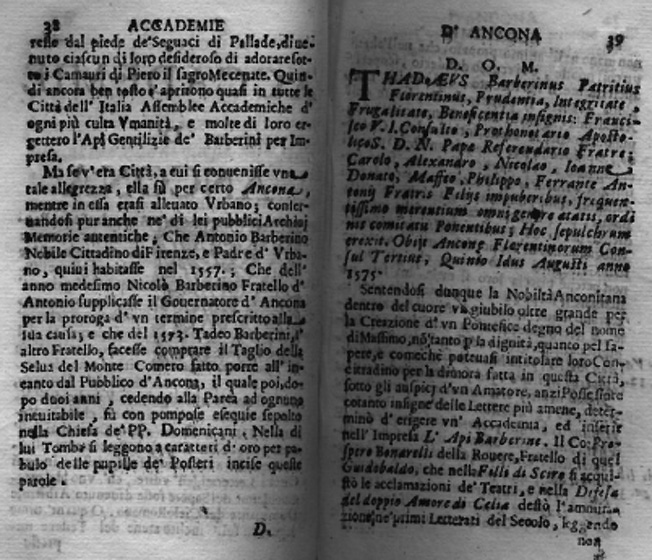 38 ACCADEMIE
resse dal piede de'Seguaci di Pallade, diue-
nuto ciascun di loro desideroso di adorare sot-
to i Camauri di Piero il sagro Mecenate. Quin-
di ancora ben tosto s'aprirono quasi in tutte le
Città dell' Italia Assemblee Accademiche d'
ogni più culta Vmanità, e molte di loro er-
gettero l'Api Gentilizie de' Barberini per Im-
presa.
Ma se v'era Città, a cui si conuenisse vna
tale allegrezza, ella fù per certo Ancona,
mentre in essa erasi alleuato Vrbano; conser-
uandosi pur anche ne' di lei pubblici Archiuj
Memorie autentiche; Che Antonio Barberino
Nobile Cittadino di Firenze, e Padre d' Vrba-
no, quiui habitasse nel 1557.; Che dell'
anno medesimo Nicolò Barberino Fratello d'
Antonio supplicasse il Gouernatore d' Ancona
per la proroga d' vn termine prescritto alla
sua causa; e che del 1573. Tadeo Barberini, l'
altro Fratello, facesse comprare il Taglio della
Selua del Monte Comero fatto porre all' in-
canto dal Pubblico d' Ancona, il quale poi, do-
po duoi anni, cedendo alla Parca ad ognuno
ineuitabile, fù con pompose esequie sepolto
nella Chiesa de' PP. Domenicani. Nella di
lui Tomba si leggono a caratteri d' oro per pa-
bulo delle pupille de' Posteri incise queste
parole.
D.
D' ANCONA 39
D. O. M.
THADÆVS Barberinus Patritius
Florentinus, Prudentia, Integritate,
Frugalitate, Beneficentia insignis: Franci-
sco V. I. Consulto, Prothonotario Aposto-
lico S. D. N. Papæ Referendario Fratre;
Carolo, Alexandro, Nicolao, Ioanne
Donato, Maffeo, Philippo, Ferrante An-
tonij Fratris Filijs impuberibus, frequen-
tissimo merentium omnigenere ætatis, ordi
nis comitatu Ponentibus; Hoc sepulchrum
erexit. Obijt Anconæ Florentinorum Con-
sul Tertius, Quinto Idus Augusti anno
1575.
Sentendosi dunque la Nobiltà Anconitana
dentro del cuore vn giubilo oltre grande per
la Creazione d' vn Pontefice degno del nome
di Massimo, nō tanto p la dignità, quanto pel sa-
pere, e comechè poteuasi intitolare loro Con-
cittadino per la dimora fatta in questa Città,
sotto gli auspicj d'vn Amatore, anzi Possessore
cotanto insigne delle Lettere più amene, deter-
minò d'erigere vn' Accademia, ed inserir
nell' Impresa L' Api Barberine. Il Co: Pro-
spero Bonarelli della Rouere, Fratello di quel
Guidobaldo, che nella Filli di Sciro si acqui-
stò le acclamazioni de' Teatri, e nella Difesa
del doppio Amore di Celia destò l'ammira-
zione ne' primi Letterati del Secolo, leggendo
non